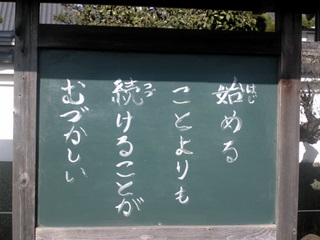 始める
ことよりも
続けることが
むづかしい